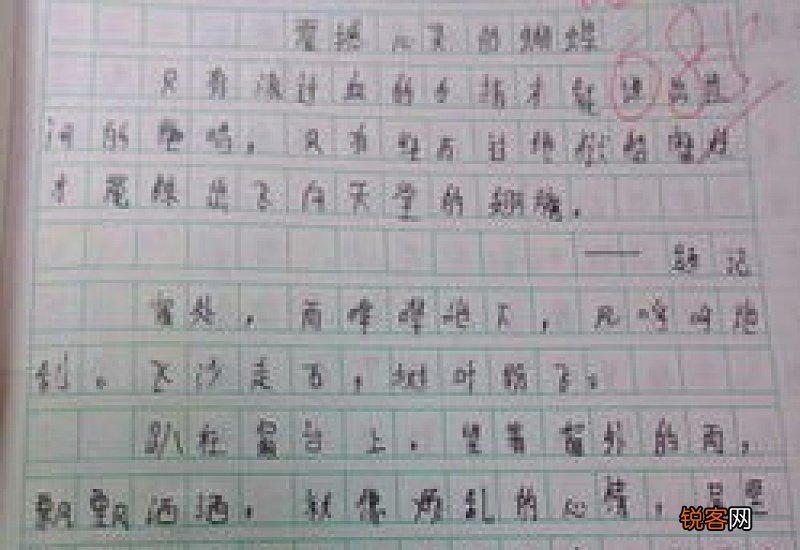 心灵的蝴蝶
只有流过血的手指才能弹出世
间的绝响，只有经历过地狱的磨炼
才能炼出飞向天堂的翅膀。
——题记
窗外，雨哗哗地下，风呼呼地
刮。飞沙走石，树叶纷飞。
趴在窗台上，望着窗外的雨，
飘飘洒洒，就像凌乱的心情，
锐客网